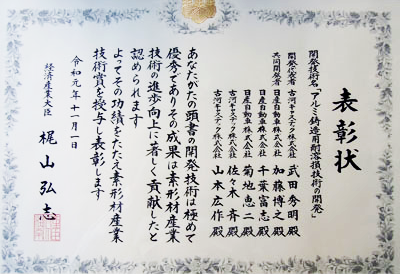 表彰状
開発技術名「アルミ鋳造用耐溶損技術の開発」
開発代表者 古河キャステック株式会社 武田秀明殿
共同開発者 日産自動車株式会社 加藤博之殿
日産自動車株式会社 千葉富志殿
日産自動車株式会社 菊地恵二殿
古河キャステック株式会社 佐々木斉殿
古河キャステック株式会社 山本広作殿
あなたがたの頭書の開発技術は極めて
優秀でありその成果は素形材産業
技術の進歩向上に著しく貢献したと
認められます
よってその功績をたたえ素形材産業
技術賞を授与し表彰します
令和元年十一月一日
経済産業大臣 梶山弘志